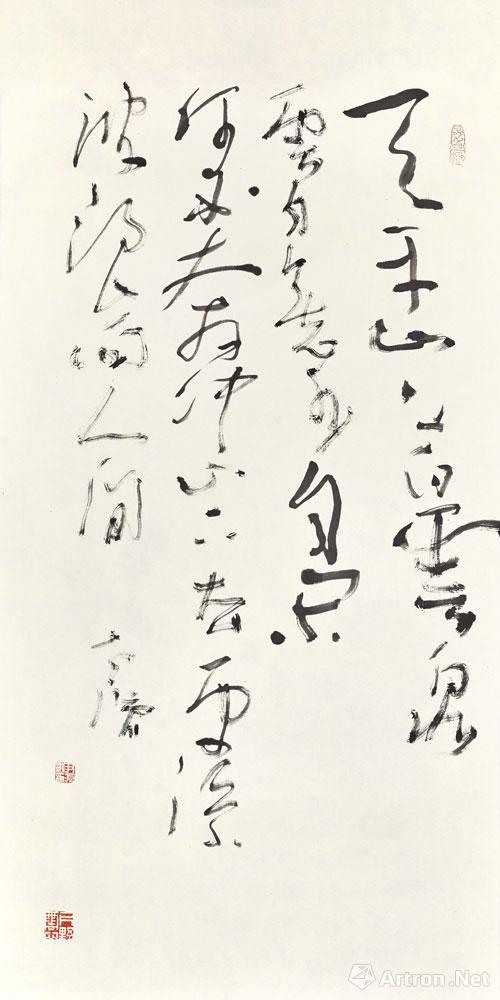 天平山上白雲泉
雲自無心水自閑
何必奔沖山下去更添
波浪向人間
Artron.Net